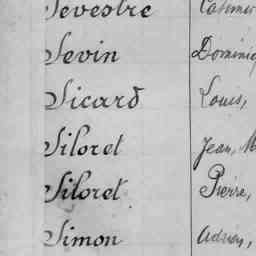 Sevestre Casimir
Sevin Dominiq
Sicard Louis,
Siloret Jean, M
Siloret Pierre,
Simon Adrien,